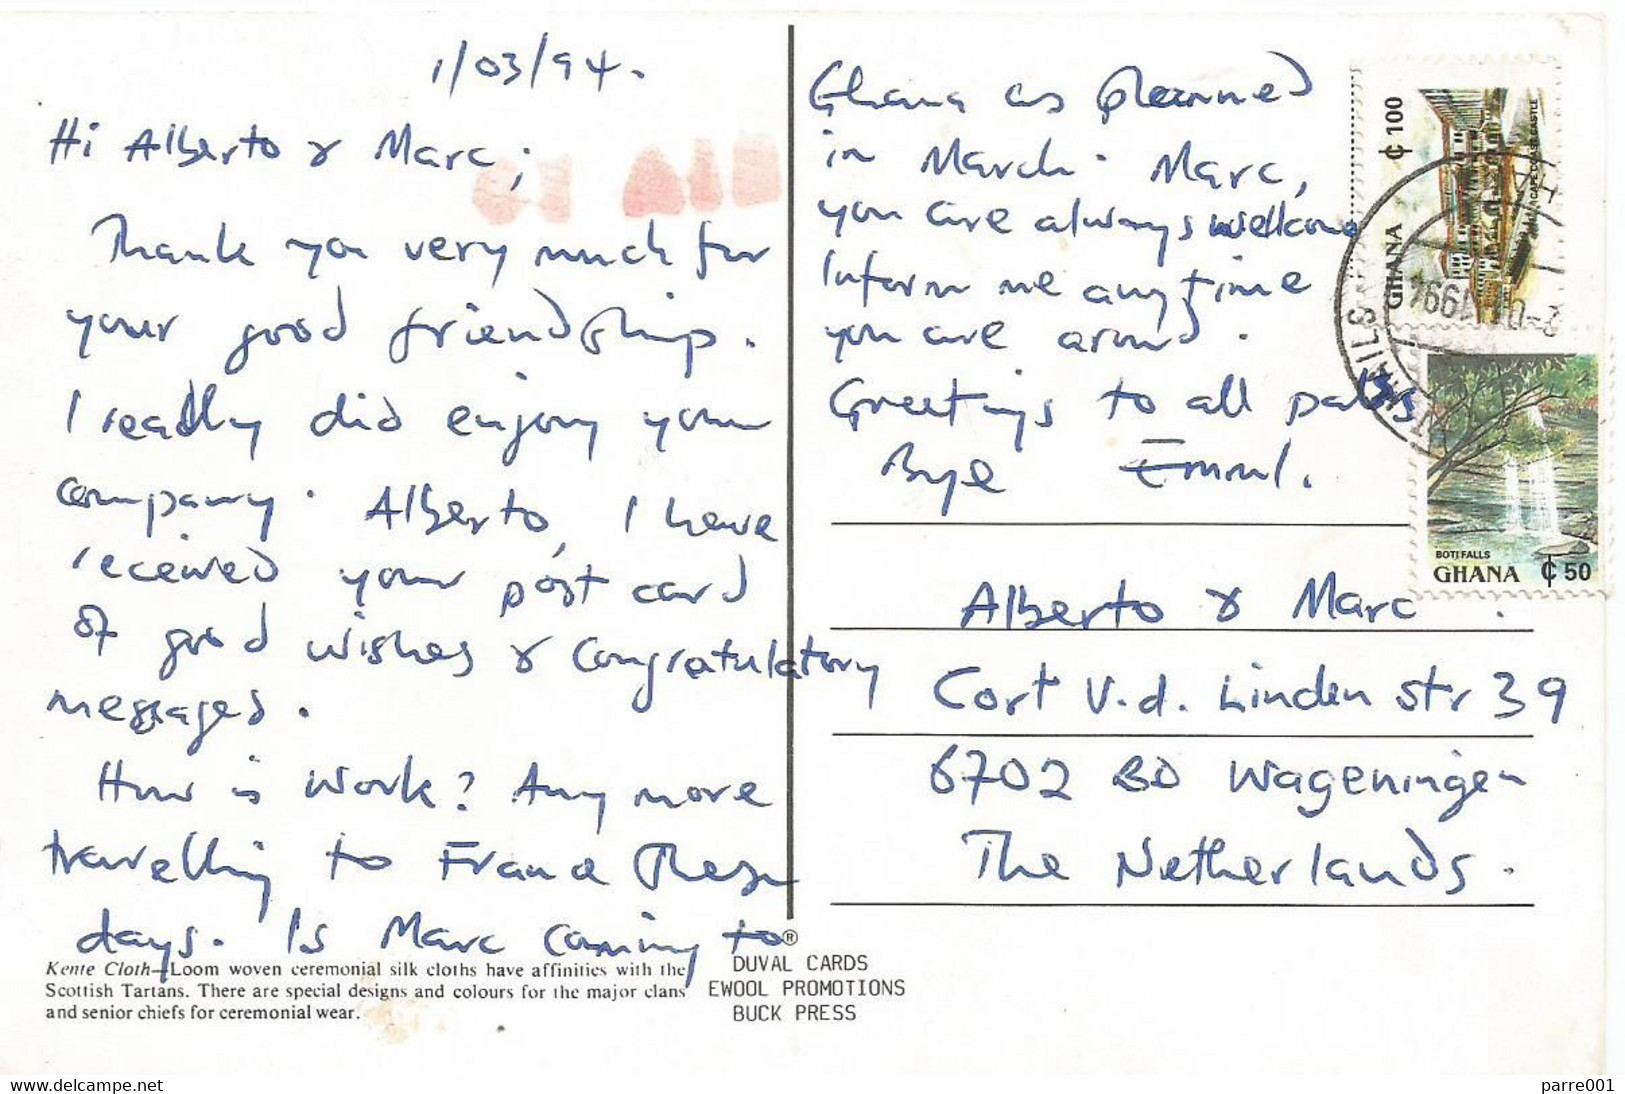 1/03/94.
Hi Alberto & Marc;
Thank you very much for
your good friendship.
I really did enjoy your
company. Alberto, I have
received your post card
of good wishes & Congratulatory
messages.
How is work? Any more
travelling to France these
days. Is Marc coming to
Ghana as planned
in March. Marc,
you are always wellcome
Inform me anytime
you are around.
Greetings to all pals
Bye Emml.
Alberto & Marc.
Cort V.d. Linden str 39
6702 BD Wageningen
The Netherlands.
Kente Cloth—Loom woven ceremonial silk cloths have affinities with the
Scottish Tartans. There are special designs and colours for the major clans
and senior chiefs for ceremonial wear.
®
DUVAL CARDS
EWOOL PROMOTIONS
BUCK PRESS
₵ 100
GHANA
CAPE COAST CASTLE
1994
BOTI FALLS
GHANA ₵ 50
delcampe.net
parre001